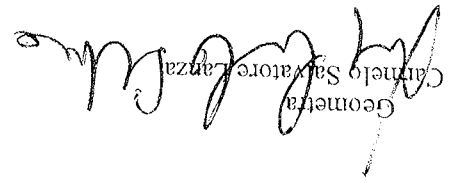 Geometra
Carmelo Salvatore Lanza